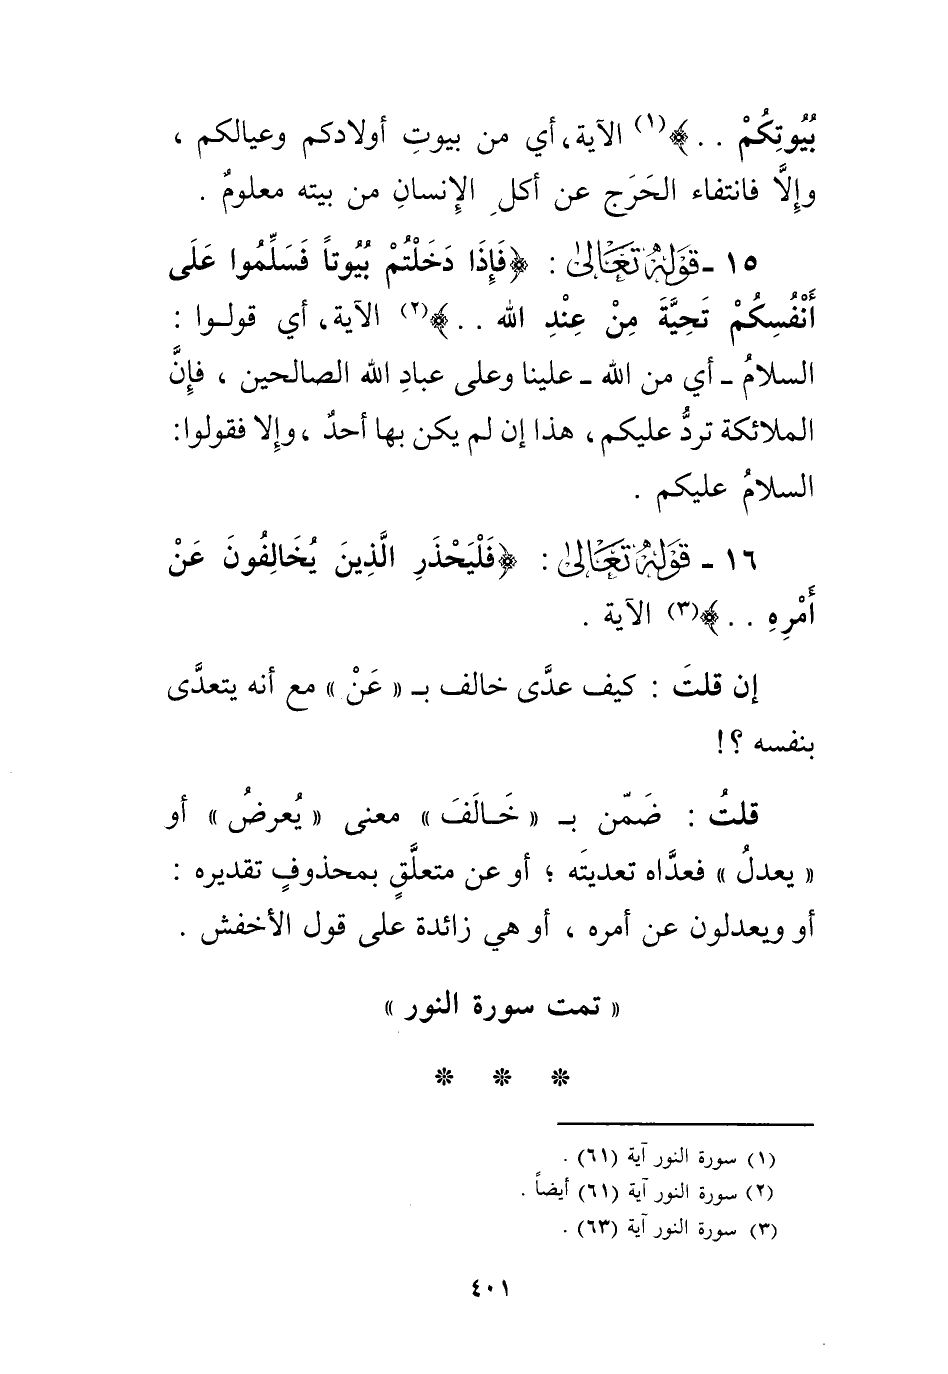 بُيُوتِكُمْ . . ﴾(١) الآية، أي من بيوتِ أولادكم وعيالكم ،
وإِلَّا فانتفاء الحَرَج عن أكلِ الإِنسانِ من بيته معلومٌ .
١٥ ـ قَوْلُهُ تَعَالَىٰ : ﴿فَإِذَا دَخَلْتُمْ بُيُوتاً فَسَلِّمُوا عَلَى
أَنْفُسِكُمْ تَحِيَّةً مِنْ عِنْدِ الله . . ﴾(٢) الآية، أي قولوا :
السلامُ ـ أي من الله ـ علينا وعلى عبادِ الله الصالحين ، فإنَّ
الملائكة تردُّ عليكم، هذا إن لم يكن بها أحدٌ ، وإلا فقولوا:
السلامُ عليكم .
١٦ ـ قَوْلُهُ تَعَالَىٰ : ﴿فَلْيَحْذَرِ الَّذِينَ يُخَالِفُونَ عَنْ
أَمْرِهِ . . ﴾(٣) الآية .
إن قلتَ : كيف عدَّى خالف بـ « عَنْ » مع أنه يتعدَّى
بنفسه ؟!
قلتُ : ضَمّن بـ « خَالَفَ » معنى « يُعرضُ » أو
« يعدلُ » فعدَّاه تعديتَه ؛ أو عن متعلَّقٍ بمحذوفٍ تقديره :
أو ويعدلون عن أمره ، أو هي زائدة على قول الأخفش .
« تمت سورة النور »
* * *
(١) سورة النور آية (٦١) .
(٢) سورة النور آية (٦١) أيضاً .
(٣) سورة النور آية (٦٣) .
٤٠١